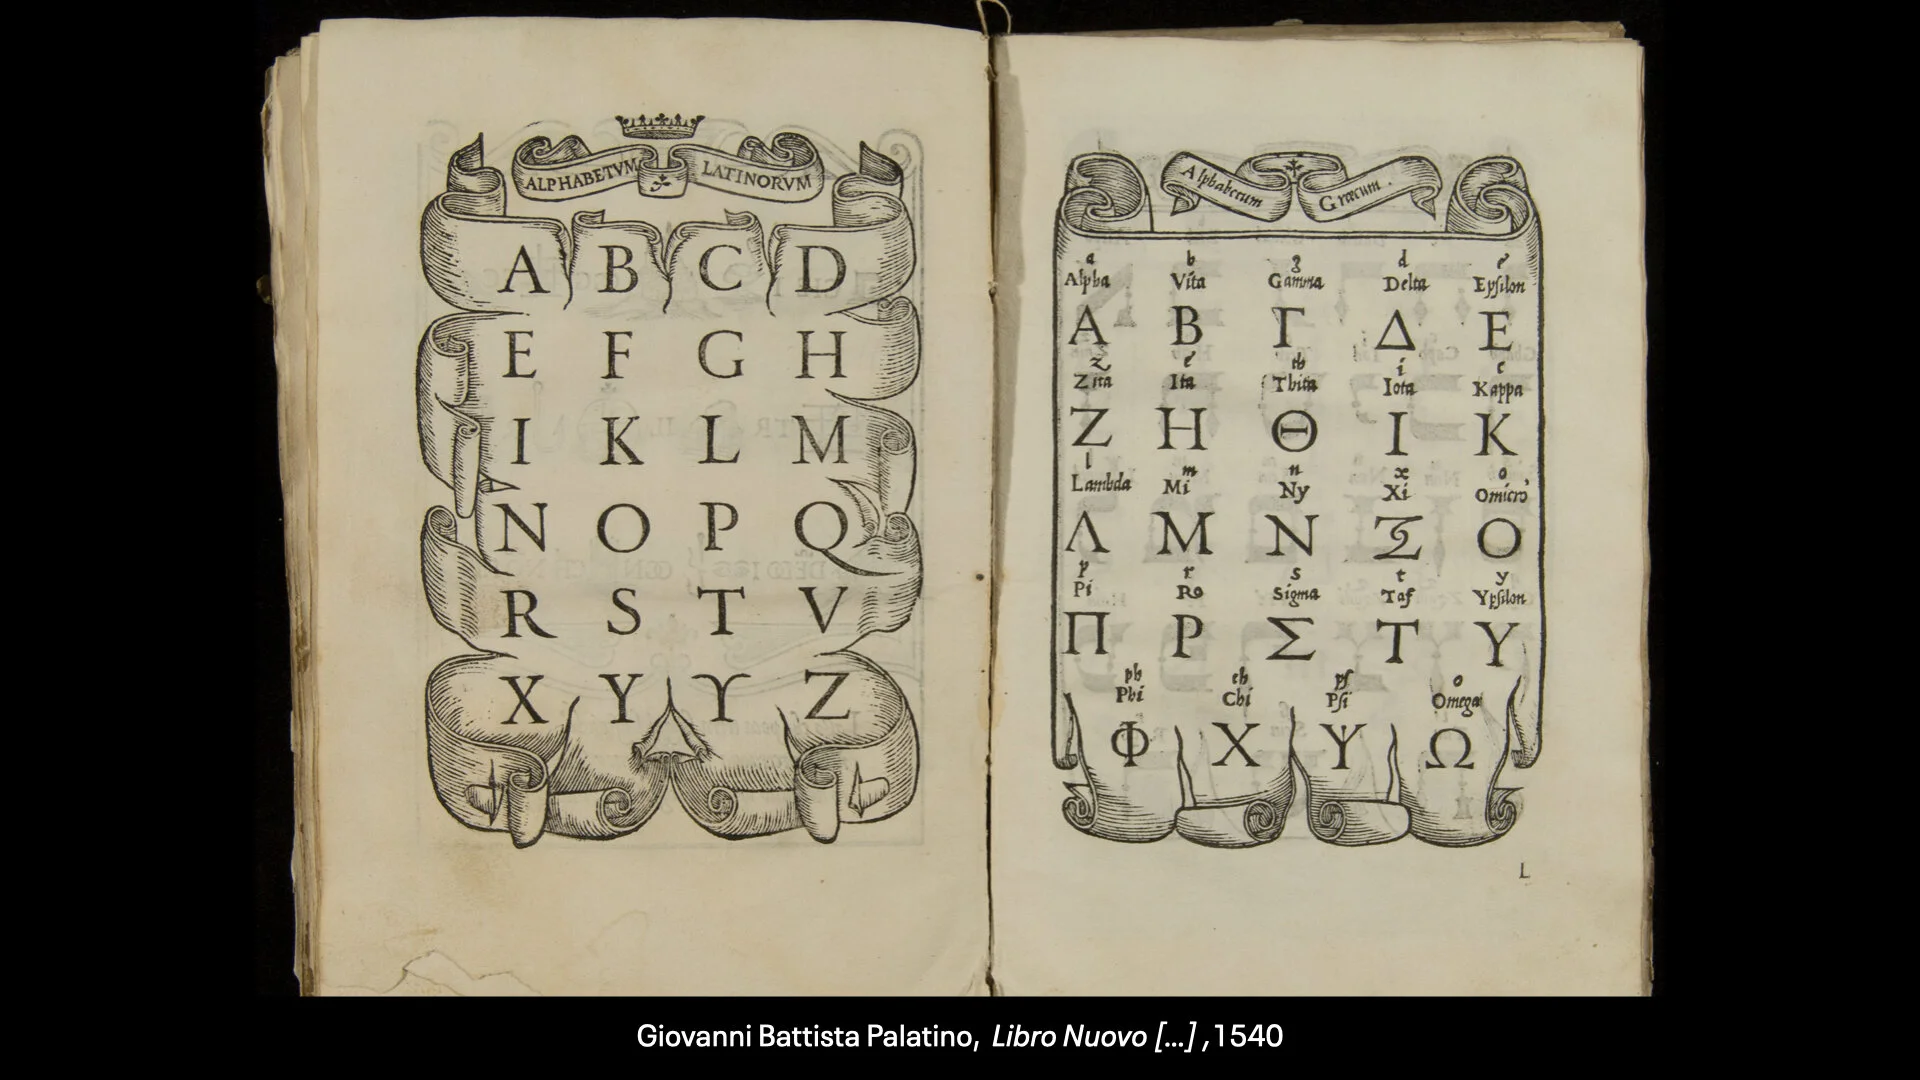 ALPHABETVM LATINORVM
A B C D
E F G H
I K L M
N O P Q
R S T V
X Y ϒ Z
Alphabetum Græcum.
a b g d e
Alpha Vita Gamma Delta Epſilon
Α Β Γ Δ Ε
z e th i c
Zita Ita Thita Iota Kappa
Ζ Η Θ Ι Κ
l m n x o
Lambda Mi Ny Xi Omicrō
Λ Μ Ν Ξ Ο
p r s t y
Pi Ro Sigma Taf Ypſilon
Π Ρ Σ Τ Υ
ph ch pſ o
Phi Chi Pſi Omega
Φ Χ Ψ Ω
L
Giovanni Battista Palatino, Libro Nuovo [...] , 1540